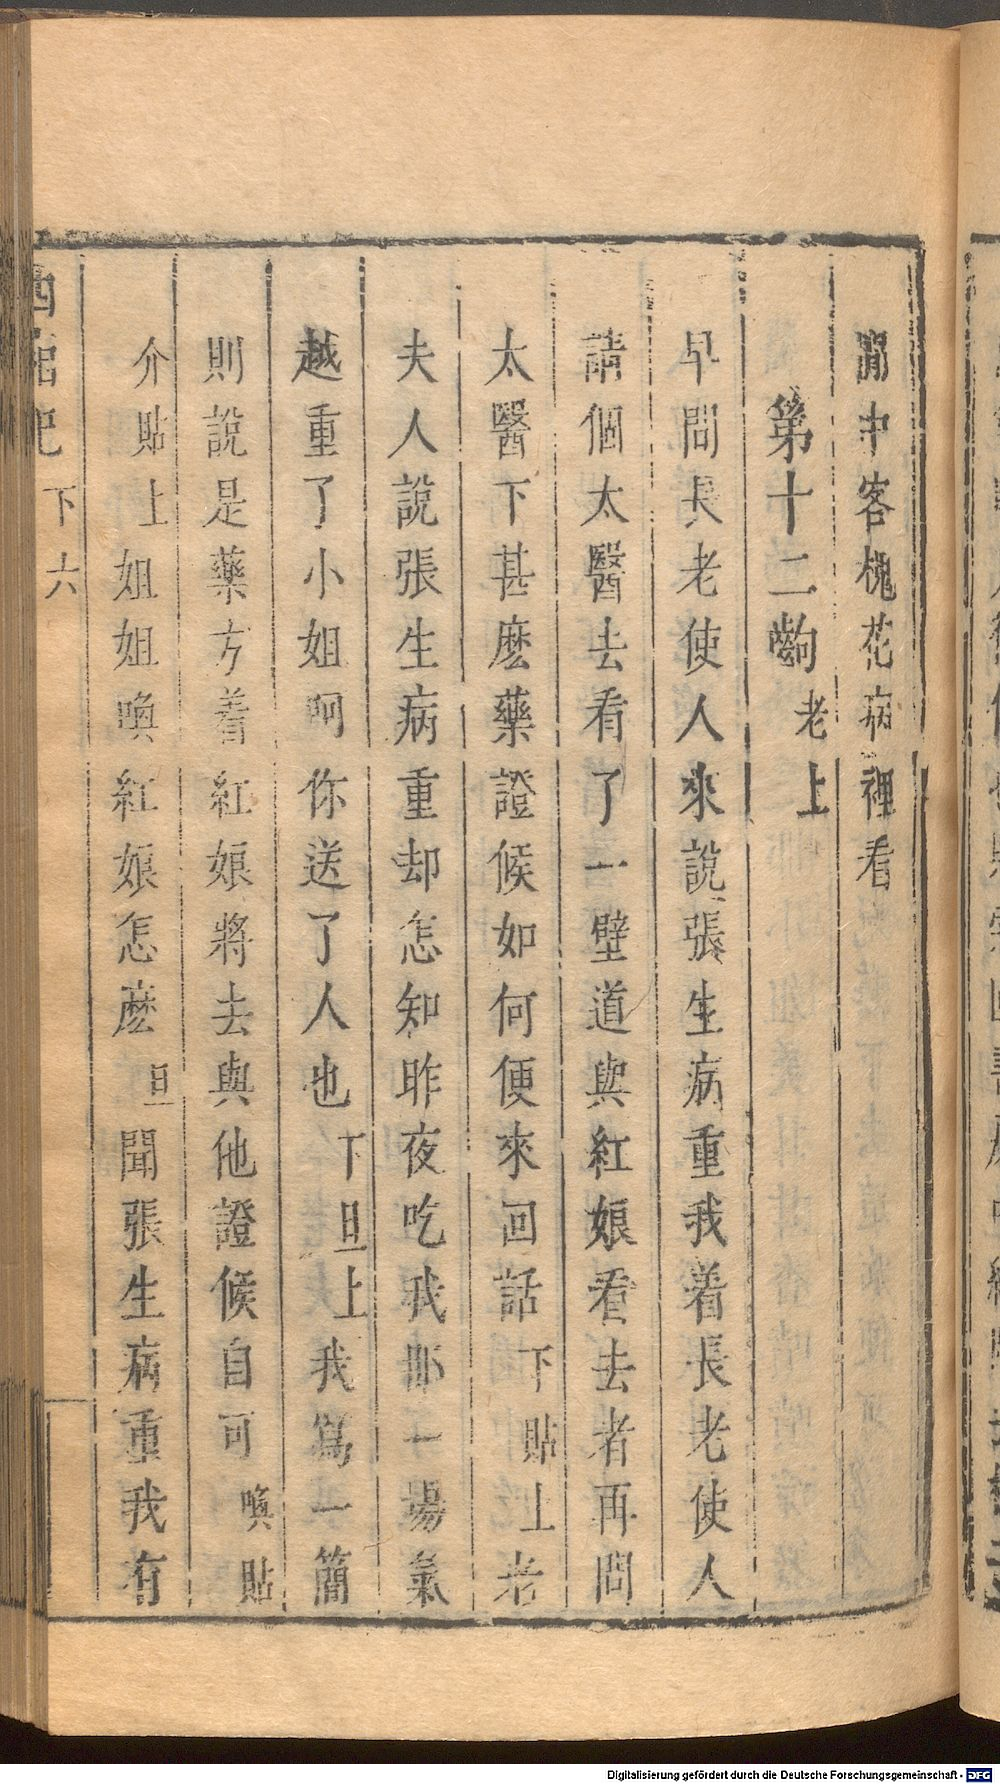 閒中客槐花病裡看
第十二齣 老上
早間長老使人來說張生病重我着長老使人
請個太醫去看了一壁道與紅娘看去者再問
太醫下甚麽藥證候如何便來回話 下 貼上 老
夫人說張生病重却怎知昨夜吃我那一場氣
越重了小姐呵你送了人也 下 旦上 我寫一簡
則說是藥方着紅娘將去與他證候自可 喚貼
介 貼上 姐姐喚紅娘怎麽 旦 聞張生病重我有
西廂記 下 六
Digitalisierung gefördert durch die Deutsche Forschungsgemeinschaft - DFG